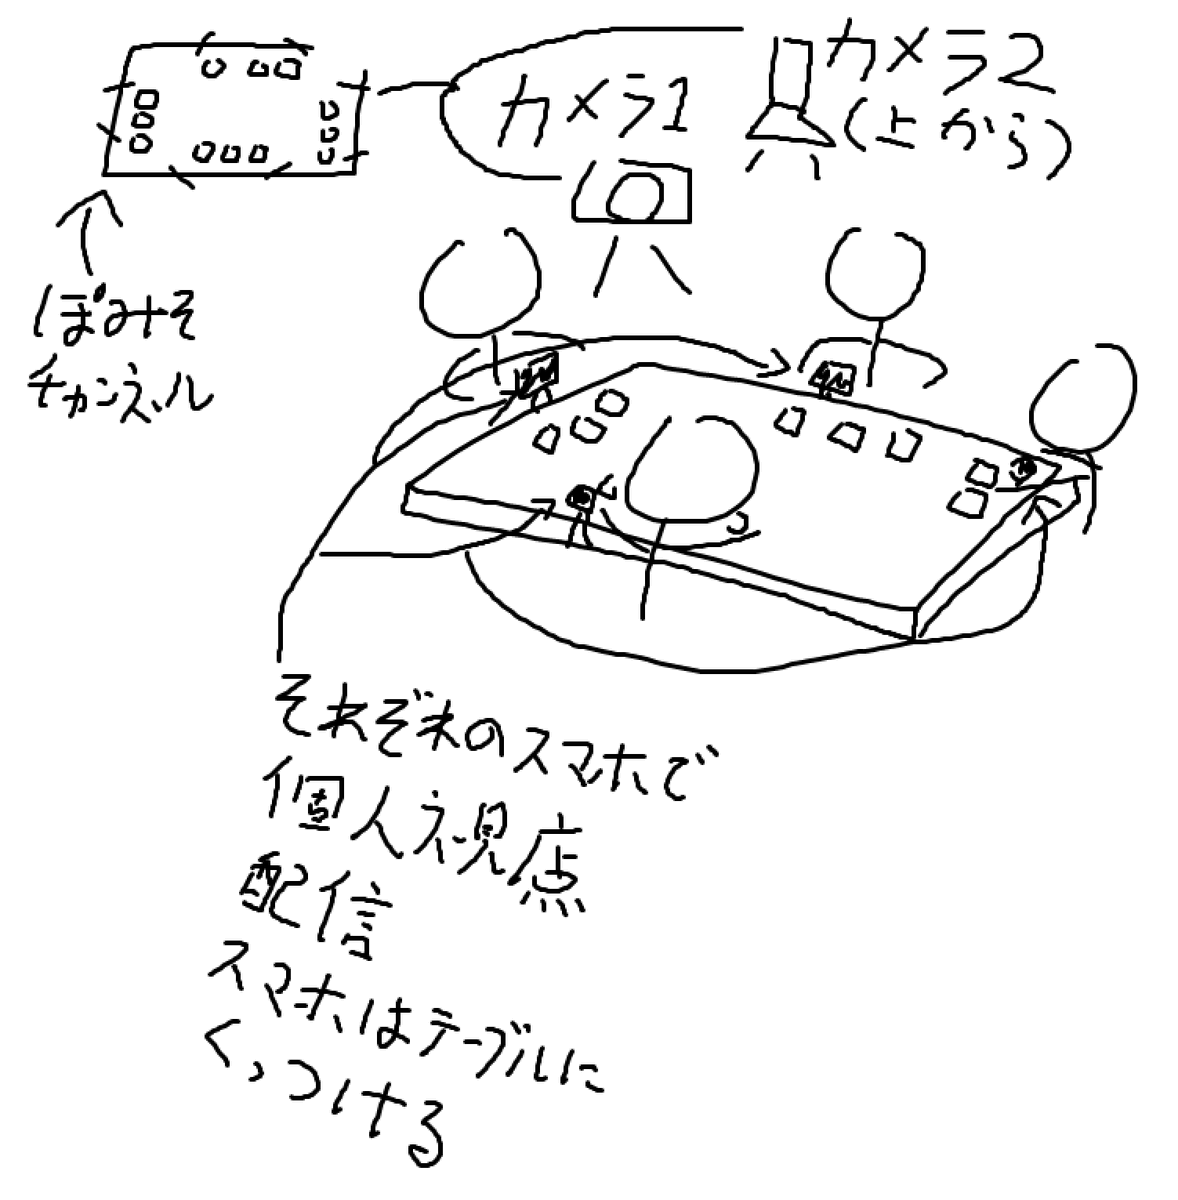 カメラ1
カメラ2
(上から)
ぽみそ
チャンネル
それぞれのスマホで
個人視点
配信
スマホはテーブルに
くっつける